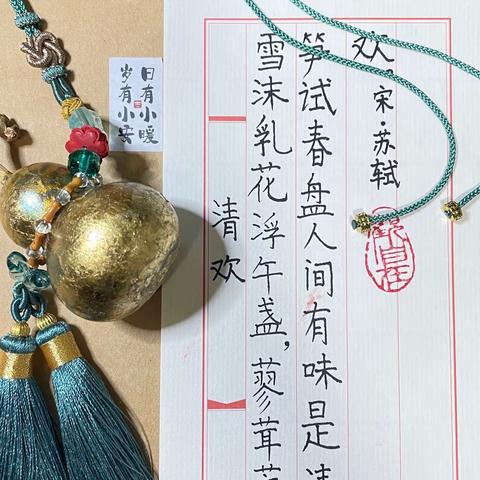 日有小暖
岁有小安
清欢
雪沫乳花浮午盏,蓼茸
笋试春盘人间有味是清
欢.
宋·苏轼
观自在